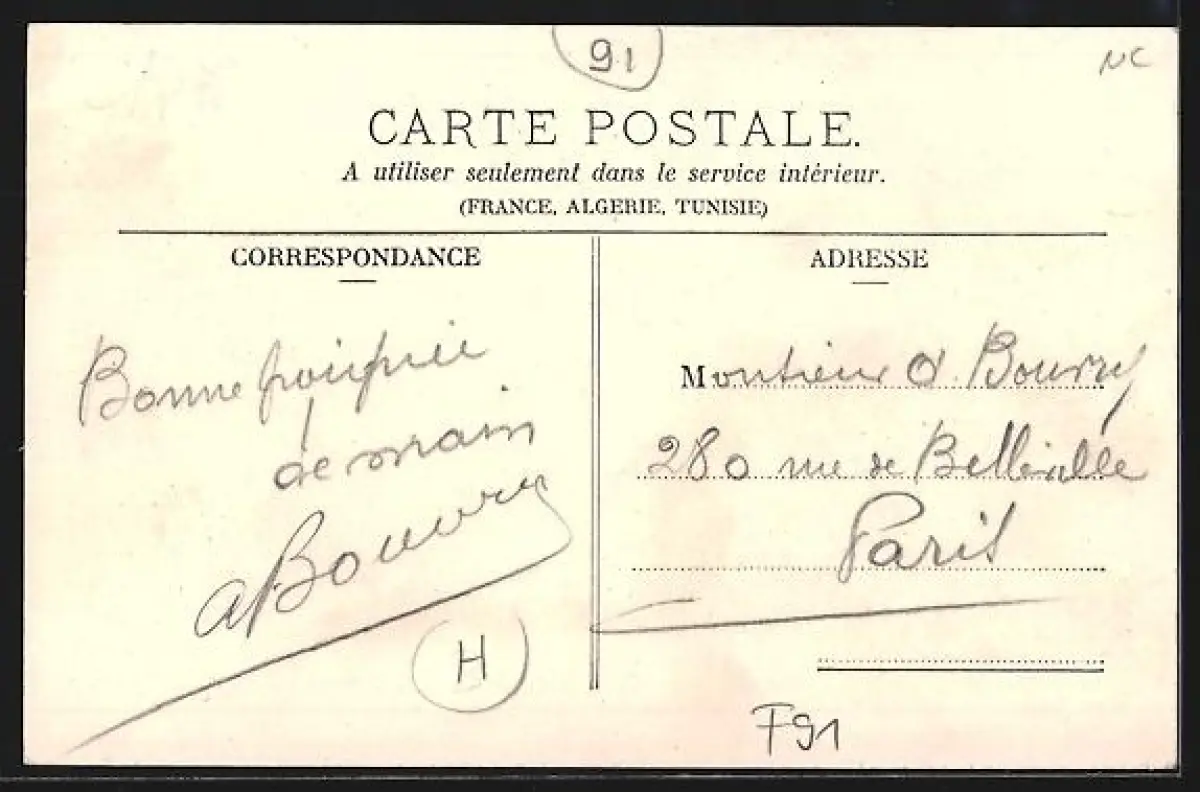 91
NC
CARTE POSTALE.
A utiliser seulement dans le service intérieur.
(FRANCE, ALGERIE, TUNISIE)
CORRESPONDANCE
Bonne poignée
de main
A Bouvry
H
ADRESSE
Monsieur A. Bouvry
280 rue de Belleville
Paris
F91